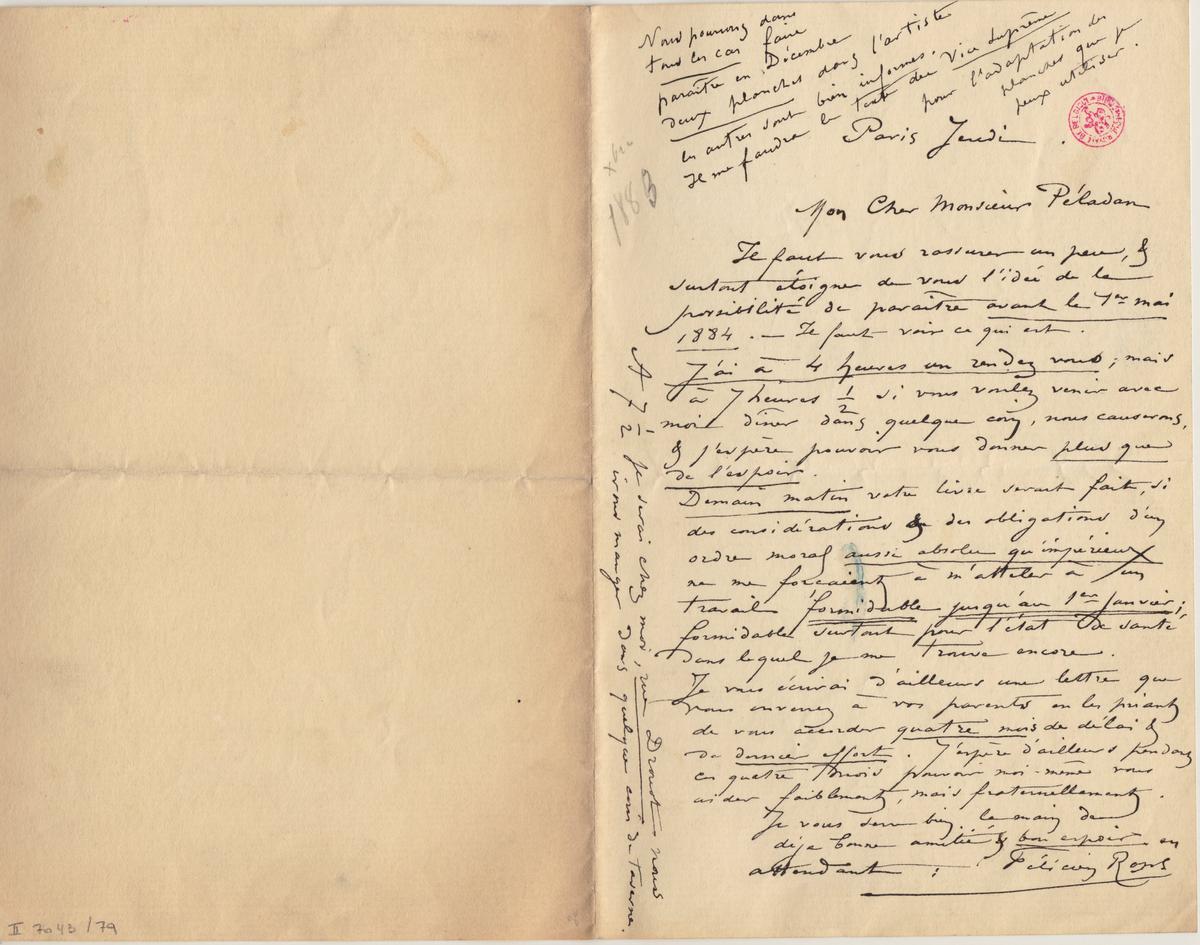 Nous pouvons dans
tous les cas faire
paraître en Décembre
deux planches dans l'artiste
les autres sont bien informes.
Il me faudra le texte du Vice Suprême
pour l'adaptation des
planches que je
peux utiliser.
Paris Jeudi.
BIBLIOTHÈQUE ROYALE DE BELGIQUE
1883
Mon Cher Monsieur Péladan
Il faut vous rassurer un peu, &
surtout éloigner de vous l'idée de la
possibilité de paraître avant le 1er mai
1884. — Il faut voir ce qui est.
J'ai à 4 heures un rendez vous; mais
à 7 heures 1/2 si vous voulez venir avec
moi dîner dans quelque coin, nous causerons,
& j'espère pouvoir vous donner plus que
de l'espoir.
Demain matin votre livre serait fait, si
des considérations & des obligations d'un
ordre moral aussi absolu qu'impérieux
ne me forçaient à m'atteler à un
travail formidable jusqu'au 1er Janvier;
formidable surtout pour l'état de santé
dans lequel je me trouve encore.
Je vous écrirai d'ailleurs une lettre que
vous enverrez à vos parents en les priant
de vous accorder quatre mois de délai &
de dernier effort. J'espère d'ailleurs pendant
ces quatre mois pouvoir moi-même vous
aider faiblement, mais fraternellement.
Je vous serre bien la main de
déjà bonne amitié & bon espoir en
attendant: Félicien Rops
A 7 1/2 je serai chez moi, rue Drouot, nous
irons manger dans quelque coin de taverne.
II 7043/79